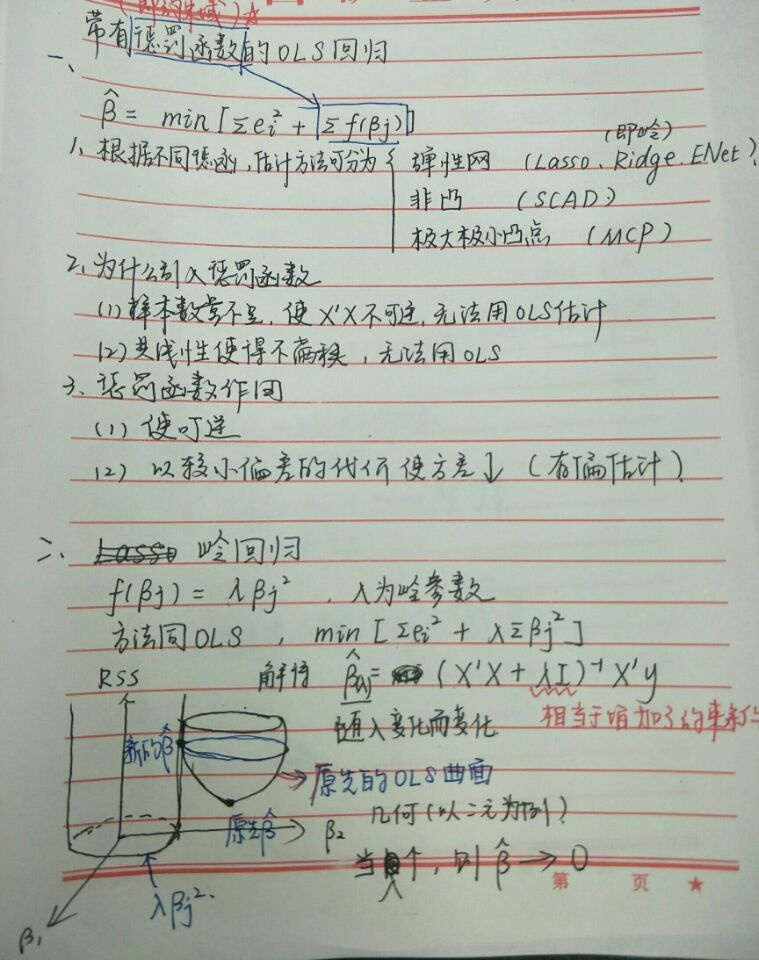 (即约束域)☆
带有惩罚函数的OLS回归
一、
β̂ = min [Σei² + Σf(βj)]
1、根据不同惩函,估计方法可分为{ 弹性网 (Lasso、Ridge、ENet)
(即岭)
非凸 (SCAD)
极大极小凸点 (MCP)
2、为什么引入惩罚函数
(1) 样本数量不足,使X'X不可逆,无法用OLS估计
(2) 共线性使得不满秩,无法用OLS
3、惩罚函数作用
(1) 使可逆
(2) 以较小偏差的代价使方差↓ (有偏估计)
二、岭回归
f(βj) = λβj² , λ为岭参数
方法同OLS , min [Σei² + λΣβj²]
RSS 解得 β̂(λ) = (X'X + λI)⁻¹X'y
随λ变化而变化 相当于增加了约束
新的β̂
原先的OLS曲面
几何(以二元为例)
原先β̂ β₂
当λ↑,则β̂→0
λβj²
β₁
第 页 ★